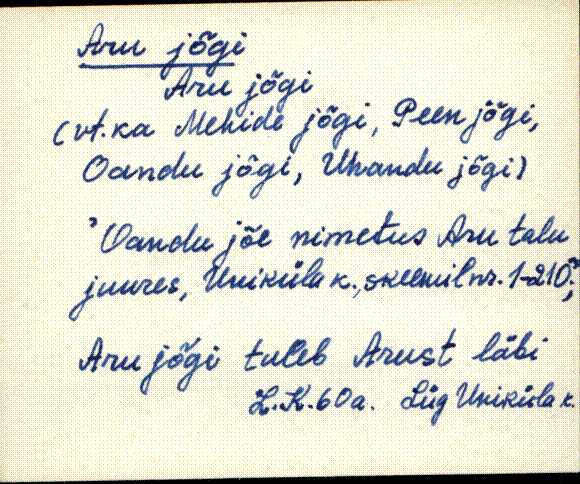 Aru jõgi
Aru jõgi
(vt. ka Mehide jõgi, Peen jõgi,
Oandu jõgi, Uhandu jõgi)
'Oandu jõe nimetus Aru talu
juures, Uniküla k., skeemil nr. 1-210';
Aru jõgi tuleb Arust läbi
L.K. 60a. Lüg Uniküla k.